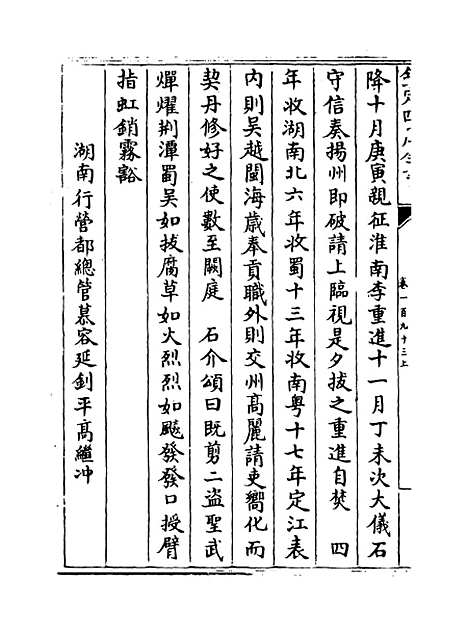 欽定四庫全書
卷一百九十三上
降十月庚寅親征淮南李重進十一月丁未次大儀石
守信奏揚州即破請上臨視是夕拔之重進自焚　四
年收湖南北六年收蜀十三年收南粤十七年定江表
内則吴越閩海歳奉貢職外則交州髙麗請吏嚮化而
契丹修好之使數至闕庭　石介頌曰既剪二盗聖武
燀燿荆潭蜀吴如拔腐草如火烈烈如飈發發口授臂
指虹銷霧豁
湖南行營都總管慕容延釗平髙繼冲